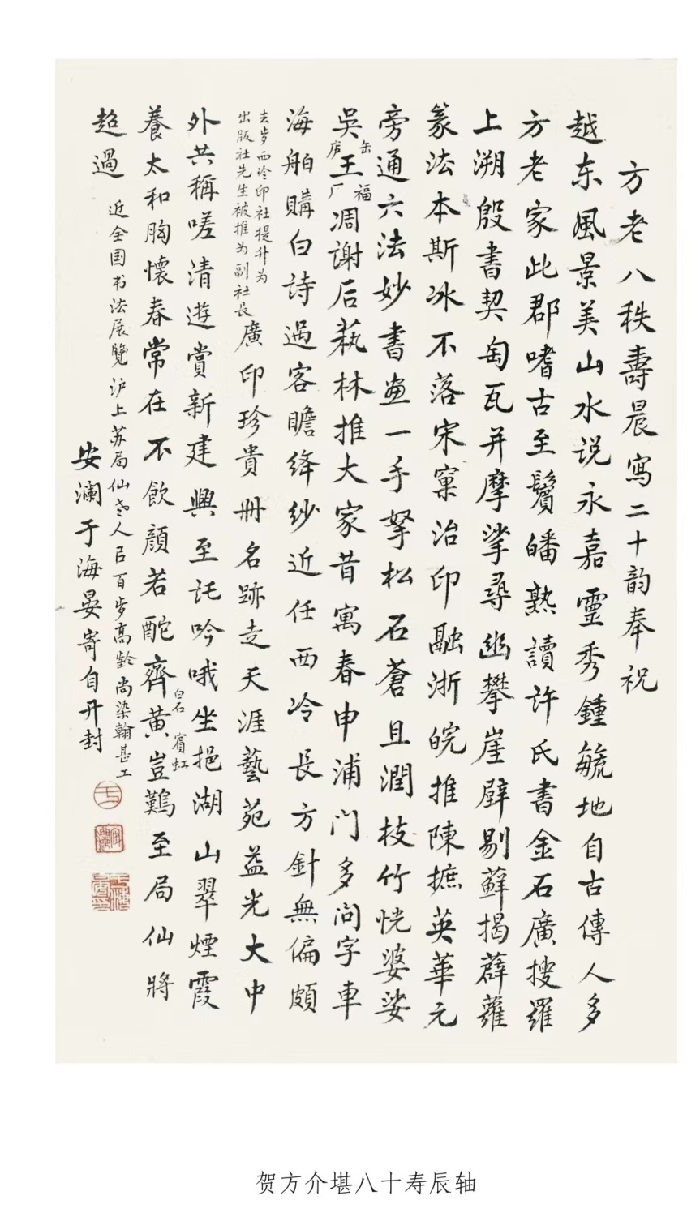 方老八秩壽晨寫二十韵奉祝
越东風景美山水说永嘉靈秀鍾毓地自古傳人多
方老家此郡嗜古至鬢皤熟讀许氏書金石廣搜羅
上溯殷書契匋瓦并摩挲尋幽攀崖壁剔蘚揭薜蘿
篆法本斯冰不落宋窠治印融浙皖推陳摭英華元
旁通六法妙書画一手拏松石蒼且潤枝竹恍婆娑
吳缶庐王福厂凋谢后萟林推大家昔寓春申浦门多问字車
海舶購白詩過客瞻绛纱近任西冷長方針無偏頗
去岁西冷印社提升为
出版社先生被推为副社長
廣印珍貴册名跡走天涯藝苑益光大中
外共稱嗟清遊賞新建興至託吟哦坐挹湖山翠煙霞
養太和胸懷春常在不飲顔若酡齊白石黄賓虹豈難至局仙將
超過 近全国书法展覽沪上苏局仙老人已百岁高齡尚染翰甚工
安澜于海晏寄自开封
贺方介堪八十寿辰轴